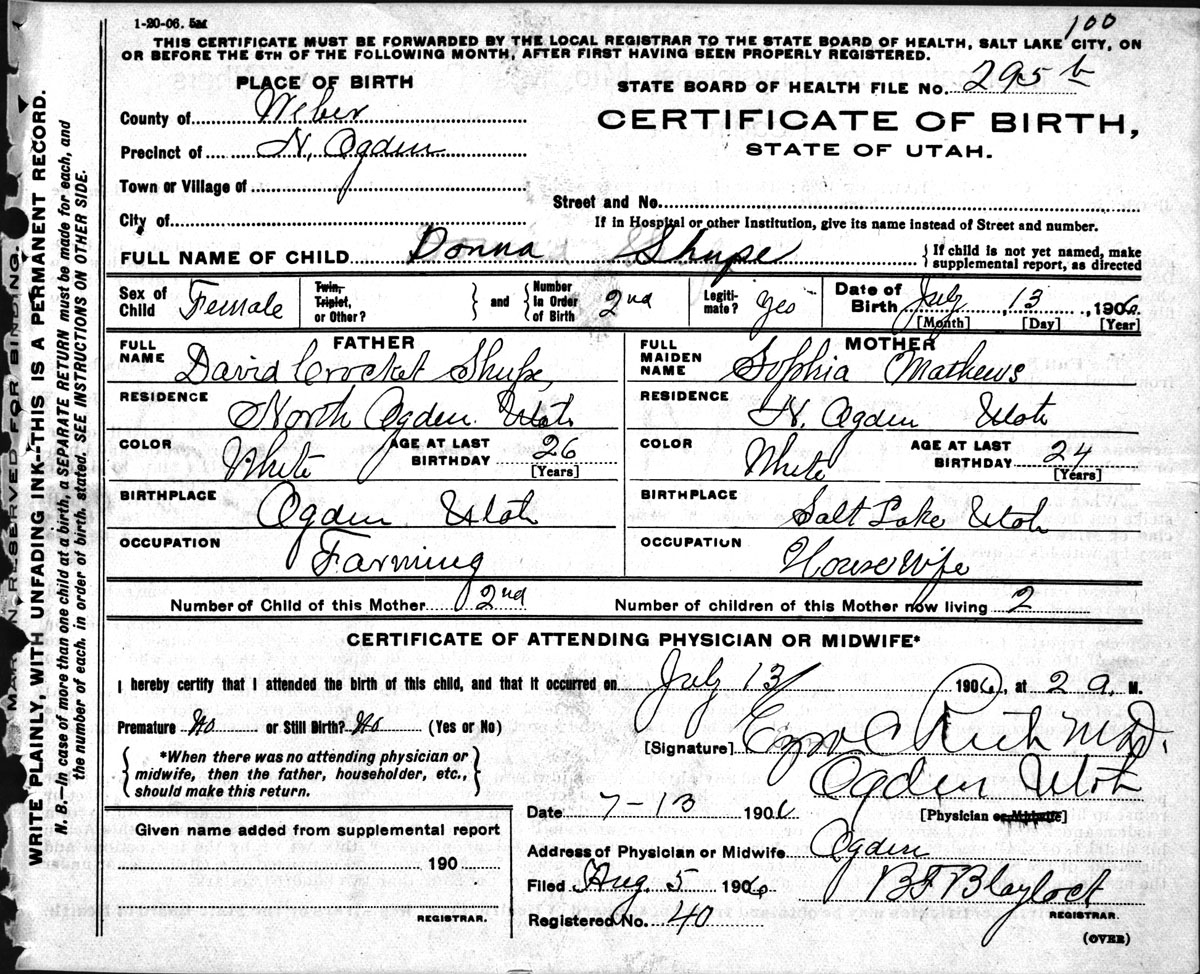 1-20-06. 5M
100
THIS CERTIFICATE MUST BE FORWARDED BY THE LOCAL REGISTRAR TO THE STATE BOARD OF HEALTH, SALT LAKE CITY, ON
OR BEFORE THE 5TH OF THE FOLLOWING MONTH, AFTER FIRST HAVING BEEN PROPERLY REGISTERED.
PLACE OF BIRTH
STATE BOARD OF HEALTH FILE No. 295 b
County of Weber
CERTIFICATE OF BIRTH,
STATE OF UTAH.
Precinct of N. Ogden
Town or Village of
Street and No.
City of
If in Hospital or other Institution, give its name instead of Street and number.
FULL NAME OF CHILD Donna Shupe { If child is not yet named, make
supplemental report, as directed
Sex of Child Female Twin, Triplet, or Other? } and { Number in Order of Birth 2nd Legiti-mate? Yes Date of Birth July, 13, 1906
[Month] [Day] [Year]
FATHER
MOTHER
FULL NAME David Crocket Shupe
FULL MAIDEN NAME Sophia Mathews
RESIDENCE North Ogden Utah
RESIDENCE N. Ogden Utah
COLOR White AGE AT LAST BIRTHDAY 26 [Years]
COLOR White AGE AT LAST BIRTHDAY 24 [Years]
BIRTHPLACE Ogden Utah
BIRTHPLACE Salt Lake Utah
OCCUPATION Farming
OCCUPATION House Wife
Number of Child of this Mother 2nd Number of children of this Mother now living 2
CERTIFICATE OF ATTENDING PHYSICIAN OR MIDWIFE*
I hereby certify that I attended the birth of this child, and that it occurred on July 13 1906, at 2 a. M.
Premature No or Still Birth? No (Yes or No)
[Signature] Ezra C Rich M.D.
*When there was no attending physician or
midwife, then the father, householder, etc.,
should make this return.
Ogden Utah
[Physician or Midwife]
Date 7-13 1906
Given name added from supplemental report
Address of Physician or Midwife Ogden
190
Filed Aug. 5 1906 BF Blaylock
REGISTRAR.
REGISTRAR.
Registered No. 40
(OVER)
MARGIN RESERVED FOR BINDING.
WRITE PLAINLY, WITH UNFADING INK--THIS IS A PERMANENT RECORD.
N. B.—In case of more than one child at a birth, a SEPARATE RETURN must be made for each, and
the number of each, in order of birth, stated. SEE INSTRUCTIONS ON OTHER SIDE.